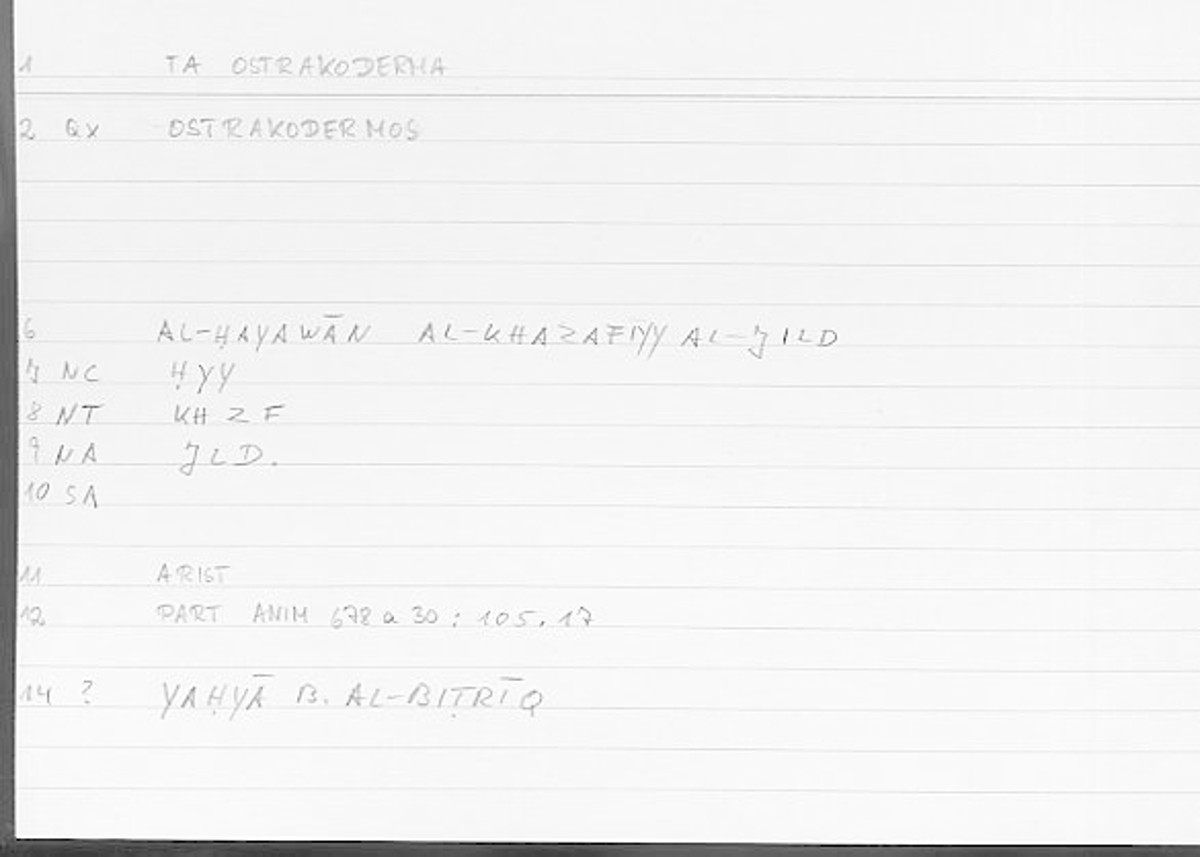 1 TA OSTRAKODERMA
2 QX OSTRAKODERMOS
6 AL-ḤAYAWĀN AL-KHAZAFĪYY AL-JILD
7 NC ḤYY
8 NT KHZF
9 NA JLD.
10 SA
11 ARIST
12 PART ANIM 678 a 30 : 105.17
14 ? YAḤYĀ B. AL-BIṬRĪQ